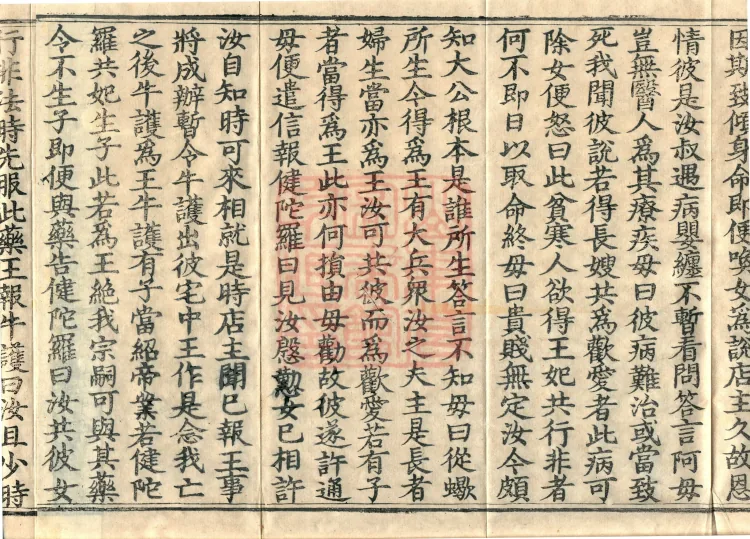 因斯致傾身命即便喚女為說店主久故恩
情彼是汝叔遇病嬰纏不暫看問答言阿母
豈無醫人為其療疾母曰彼病難治或當致
死我聞彼說若得長嫂共為歡愛者此病可
除女便怒曰此貧寒人欲得王妃共行非者
何不即日以取命終母曰貴賤無定汝今頗
知大公根本是誰所生答言不知母曰從蠍
所生今得為王有大兵眾汝之夫主是長者
婦生當亦為王汝可共彼而為歡愛若有子
者當得為王此亦何損由母勸故彼遂許通
母便遣信報健陀羅曰見汝慇懃女已相許
汝自知時可來相就是時店主聞已報王事
將成辦暫令牛護出彼宅中王作是念我亡
之後牛護為王牛護有子當紹帝業若健陀
羅共妃生子此若為王絕我宗嗣可與其藥
令不生子即便與藥告健陀羅曰汝共彼女
行非法時先服此藥王報牛護曰汝且少時